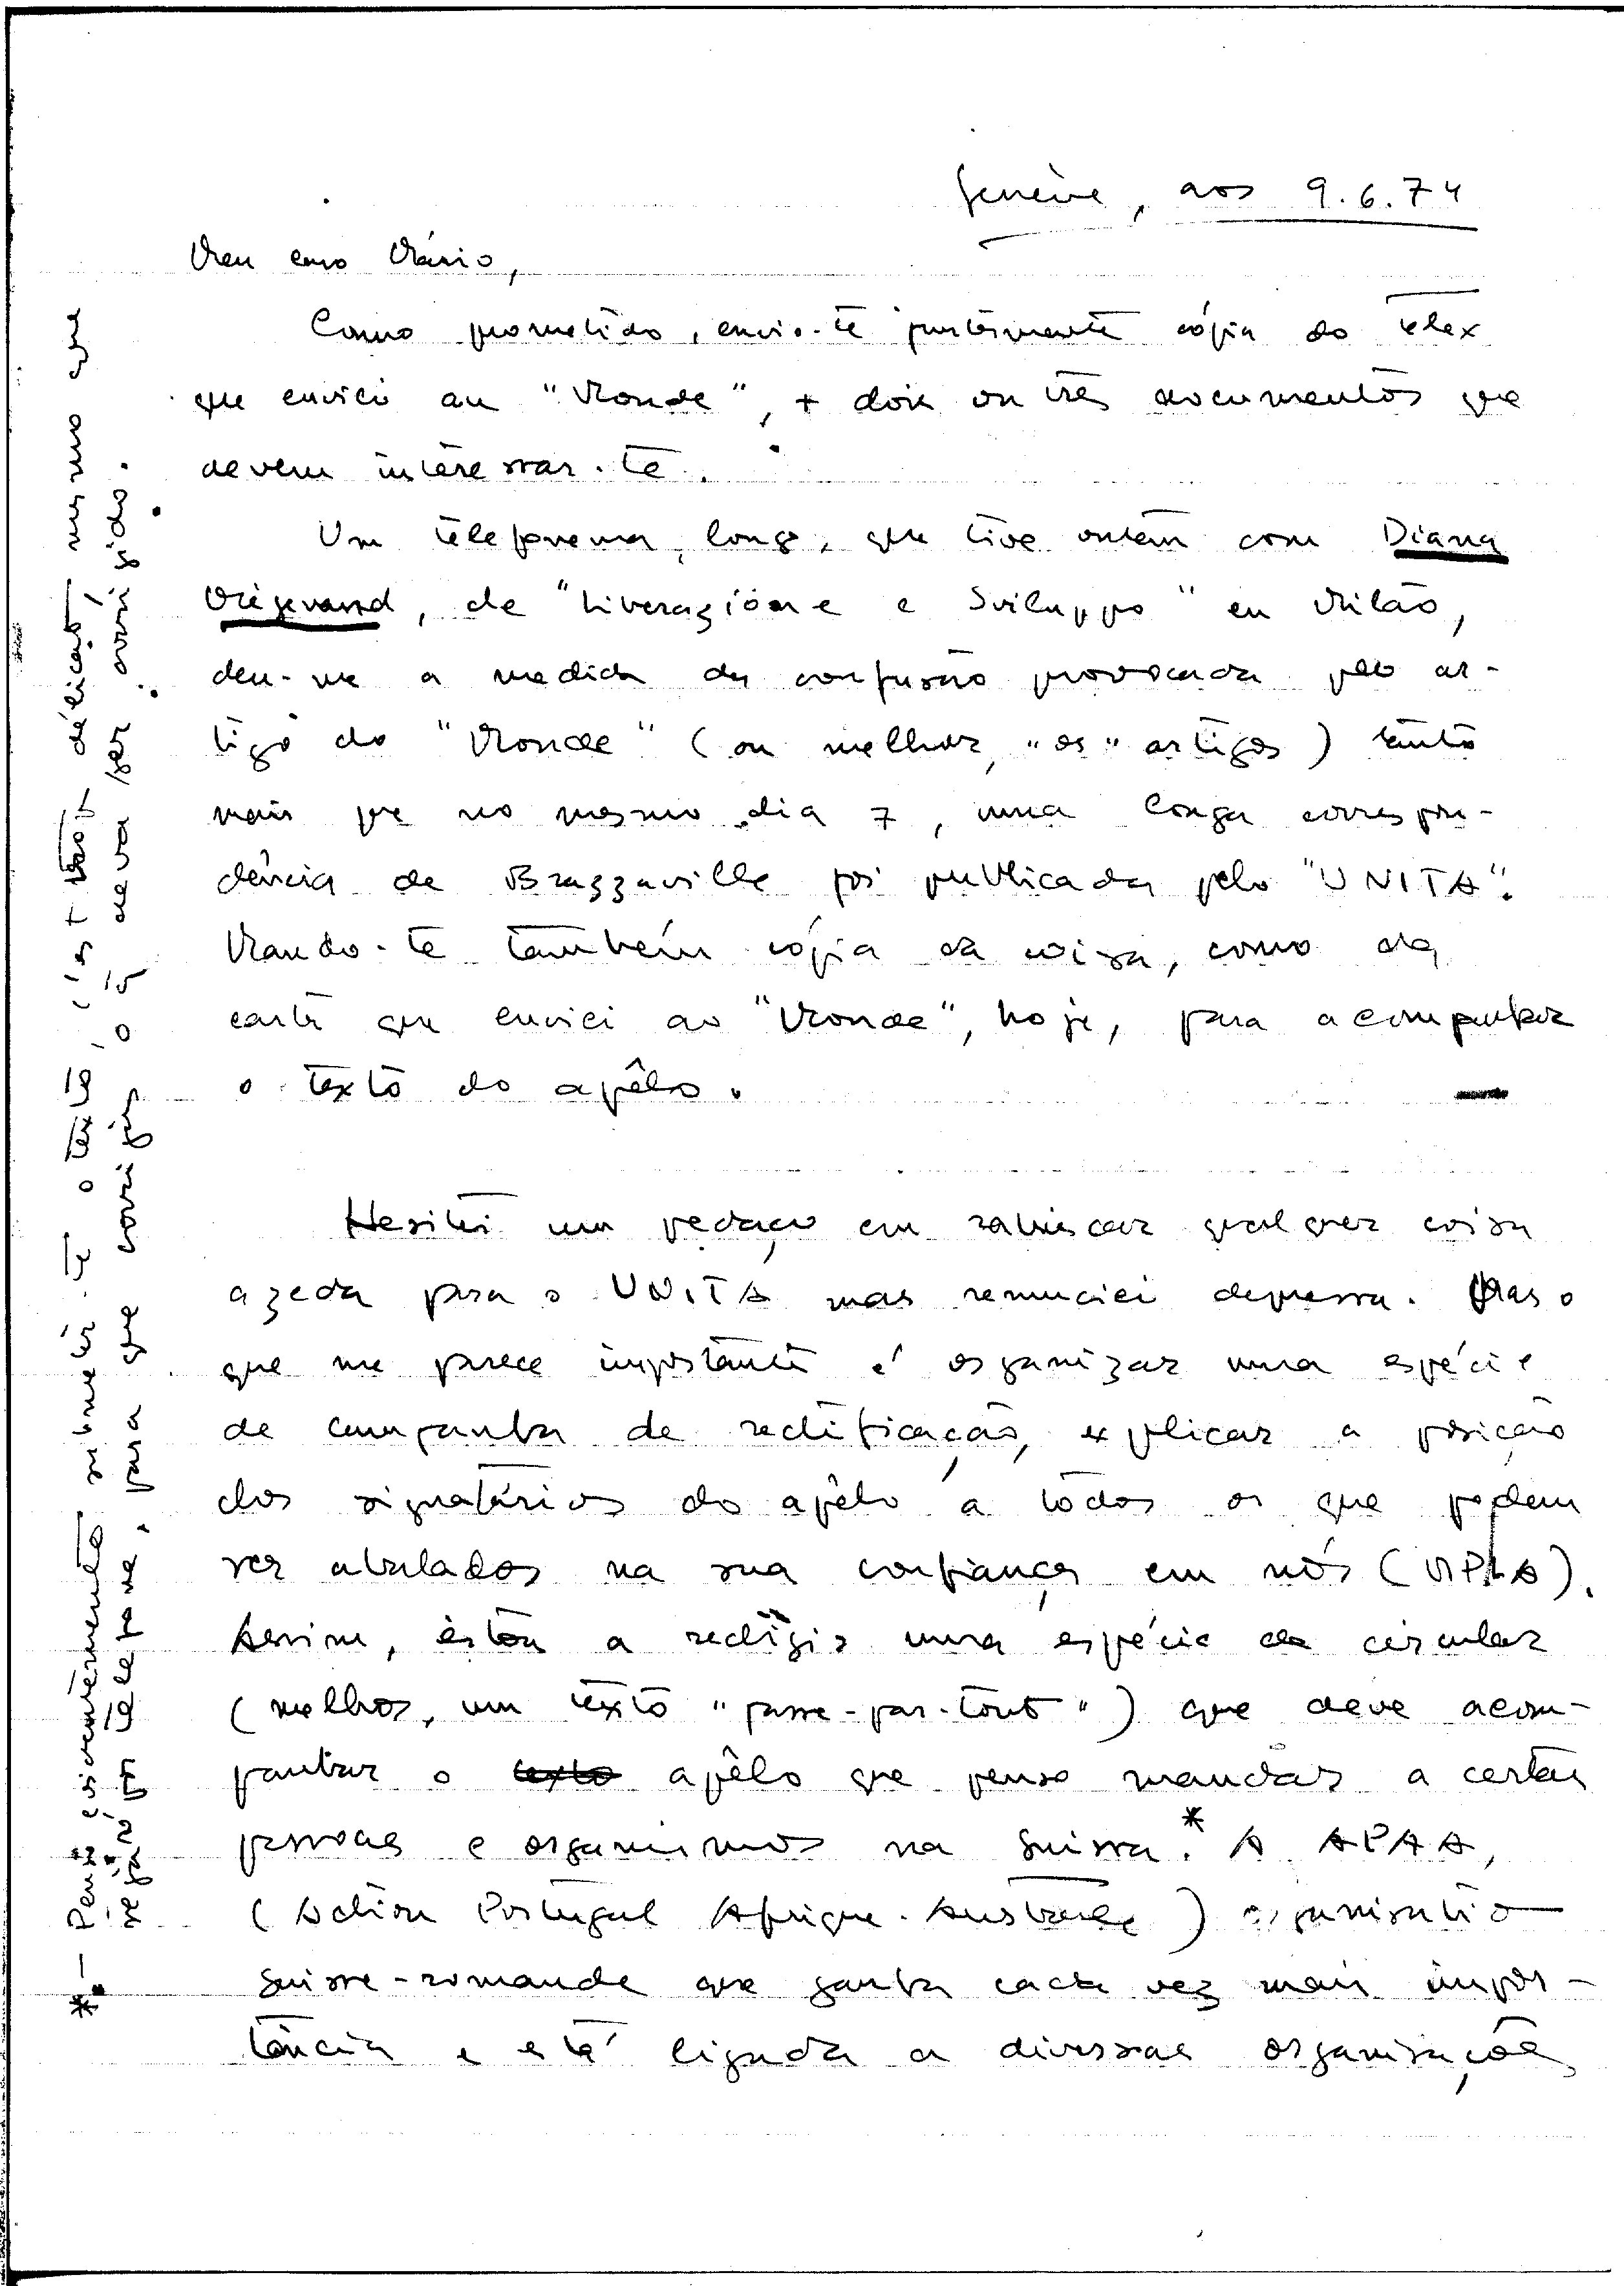 Genève, aos 9.6.74
Meu caro Mário,
Como prometido, envio-te juntamente cópia do telex
que enviei au "Monde", + dois ou três documentos que
devem interessar-te.
Um telefonema, longo, que tive ontem com Diana
de "Liberazione e Sviluppo" en Milão,
deu-me a medida da confusão provocada pelo ar-
tigo do "Monde" (ou melhor, "os" artigos) tanto
mais que no mesmo dia 7, uma longa correspon-
dência de Brazzaville foi publicada pelo "UNITA".
Mando-te também cópia da coisa, como da
carta que enviei ao "Monde", hoje, para acompanhar
o texto do apêlo.
Hesitei um pedaço em rabiscar qualquer coisa
azeda para o UNITA mas renunciei depressa. Mas o
que me parece importante é organizar uma espécie
de campanha de rectificação, explicar a posição
dos signatários do apêlo a todos os que podem
ser abalados na sua confiança em nós (MPLA).
Assim, estou a redigir uma espécie de circular
(melhor, um texto "passe-par-tout") que deve acom-
panhar o texto apêlo que penso mandar a certas
pessoas e organismos na Suissa.* A APAA,
(Action Portugal Afrique-Australe) organisatio
suisse-romande que ganha cada vez mais impor-
tância e está ligada a diversas organisações
*.- Penso evidentemente submeter-te o texto, c'est trop délicat, mesmo que
seja por telefone, para que corrijas o q deva ser corrigido.